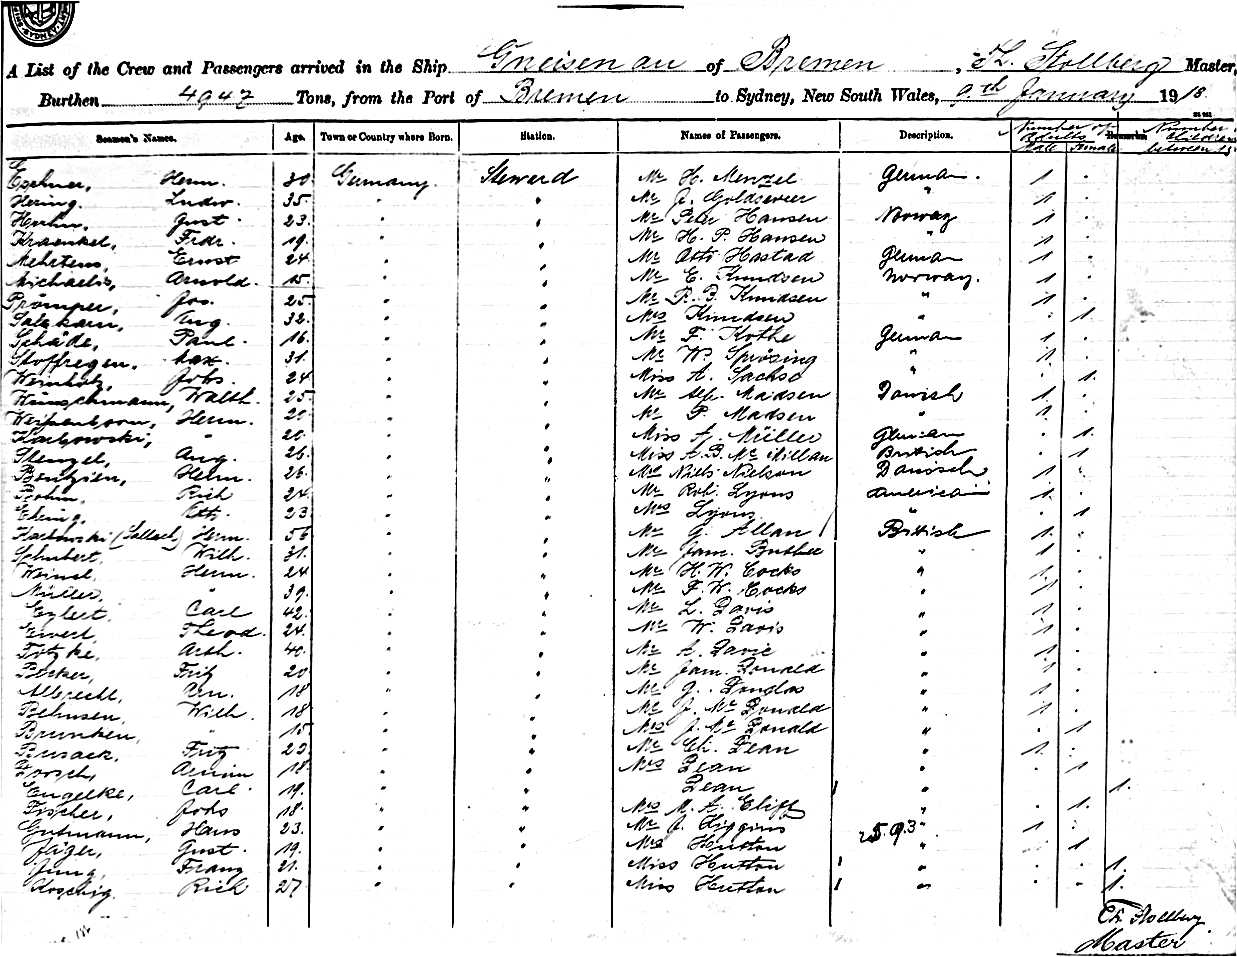 A List of the Crew and Passengers arrived in the Ship Gneisenau of Bremen, Th. Stollberg Master,
Burthen 4947 Tons, from the Port of Bremen to Sydney, New South Wales, 9th January 1918.
Seamen's Names. Age. Town or Country where Born. Station. Names of Passengers. Description. Number of Adults Male Female Remarks Number Children between
Eschner, Herm. 30 Germany. Steward Mr H. Menzel German. 1 .
Hering, Ludw. 35 " " Mr J. Goldseveer " 1 .
Huhn, Gust 23 " " Mr Peter Hansen Norway 1 .
Kraenkel, Frdr. 19 " " Mr H. P. Hansen " 1 .
Mehrtens, Ernst 24 " " Mr Otto Hastad German 1 .
Michaelis, Arnold. 15 " " Mr E. Knudsen Norway. 1 .
Prömper, Jos. 25 " " Mr P. B. Knudsen " 1 .
Salzkorn, Aug. 32 " " Mrs Knudsen " . 1
Schäde, Paul 16 " " Mr F. Kothe German 1 .
Stoffregen, Max 31 " " Mr W. Sprösing " 1 .
Weinholz, Johs. 24 " " Miss A. Sachse " . 1
Wünschmann, Walth. 25 " " Mr Alf. Madsen Danish 1 .
Weissenborn, Herm. 20 " " Mr P. Madsen " 1 .
Karbowski, " 20 " " Miss A. Müller German . 1
Stenzel, Aug. 26 " " Miss A. B. McMillan British . 1
Bentzien, Herm. 26 " " Mr Niels Nielson Danisch 1 .
Bohm, Rich 24 " " Mr Rob. Lyons American 1 .
Ehing, Otto 23 " " Mrs Lyons " . 1
Karbowski (Sallach) Herm. 56 " " Mr G. Allan British 1 .
Schubert, Wilh. 31 " " Mr Jam. Buthee " 1 .
Weinel, Herm. 24 " " Mr H. W. Cocks " 1 .
Müller, " 39 " " Mr F. W. Cocks " 1 .
Eylert, Carl 42 " " Mr L. Davis " 1 .
Ewert, Theod. 24 " " Mr W. Davis " 1 .
Fritzke, Arth. 40 " " Mr A. Davie " 1 .
Becker, Fritz 20 " " Mr Jam. Donald " 1 .
Albrecht, Arn. 18 " " Mr J. Douglas " 1 .
Behnsen, Wilh. 18 " " Mr J. McDonald " 1 .
Brunken, " 15 " " Mrs J. McDonald " . 1
Busack, Fritz 20 " " Mr Ch. Dean " 1 .
Dorsch, Armin 18 " " Mrs Dean " . 1
Engelke, Carl 19. " " Dean 1 " 1.
Fischer, Johs 18 " " Mrs M. A. Cliff " . 1
Gutmann, Hans 23. " " Mr J. Higgins 2593 " 1 .
Jäger, Gust. 19. " " Mrs Hutton " . 1
Jung, Franz 21. " " Miss Hutton 1 " . . 1.
Koschig. Rich 27 " " Miss Hutton 1 " . . 1.
Th. Stollberg
Master